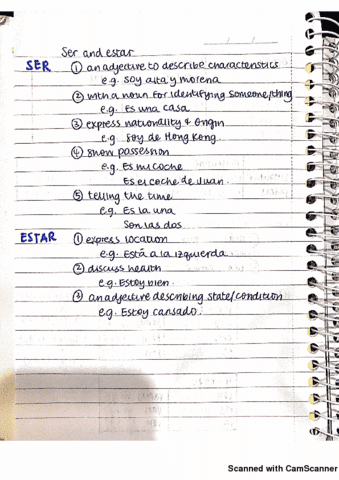 Ser and estar
SER ① an adjective to describe characteristics
e.g. Soy alta y morena
② with a noun for identifying someone/thing
e.g. Es una casa
③ express nationality & origin
e.g. Soy de Hong Kong.
④ show possession
e.g. Es mi coche
Es el coche de Juan.
⑤ telling the time
e.g. Es la una
Son las dos.
ESTAR ① express location
e.g. Está a la izquierda.
② discuss health
e.g. Estoy bien.
③ an adjective describing state/condition
e.g. Estoy cansado.
Scanned with CamScanner